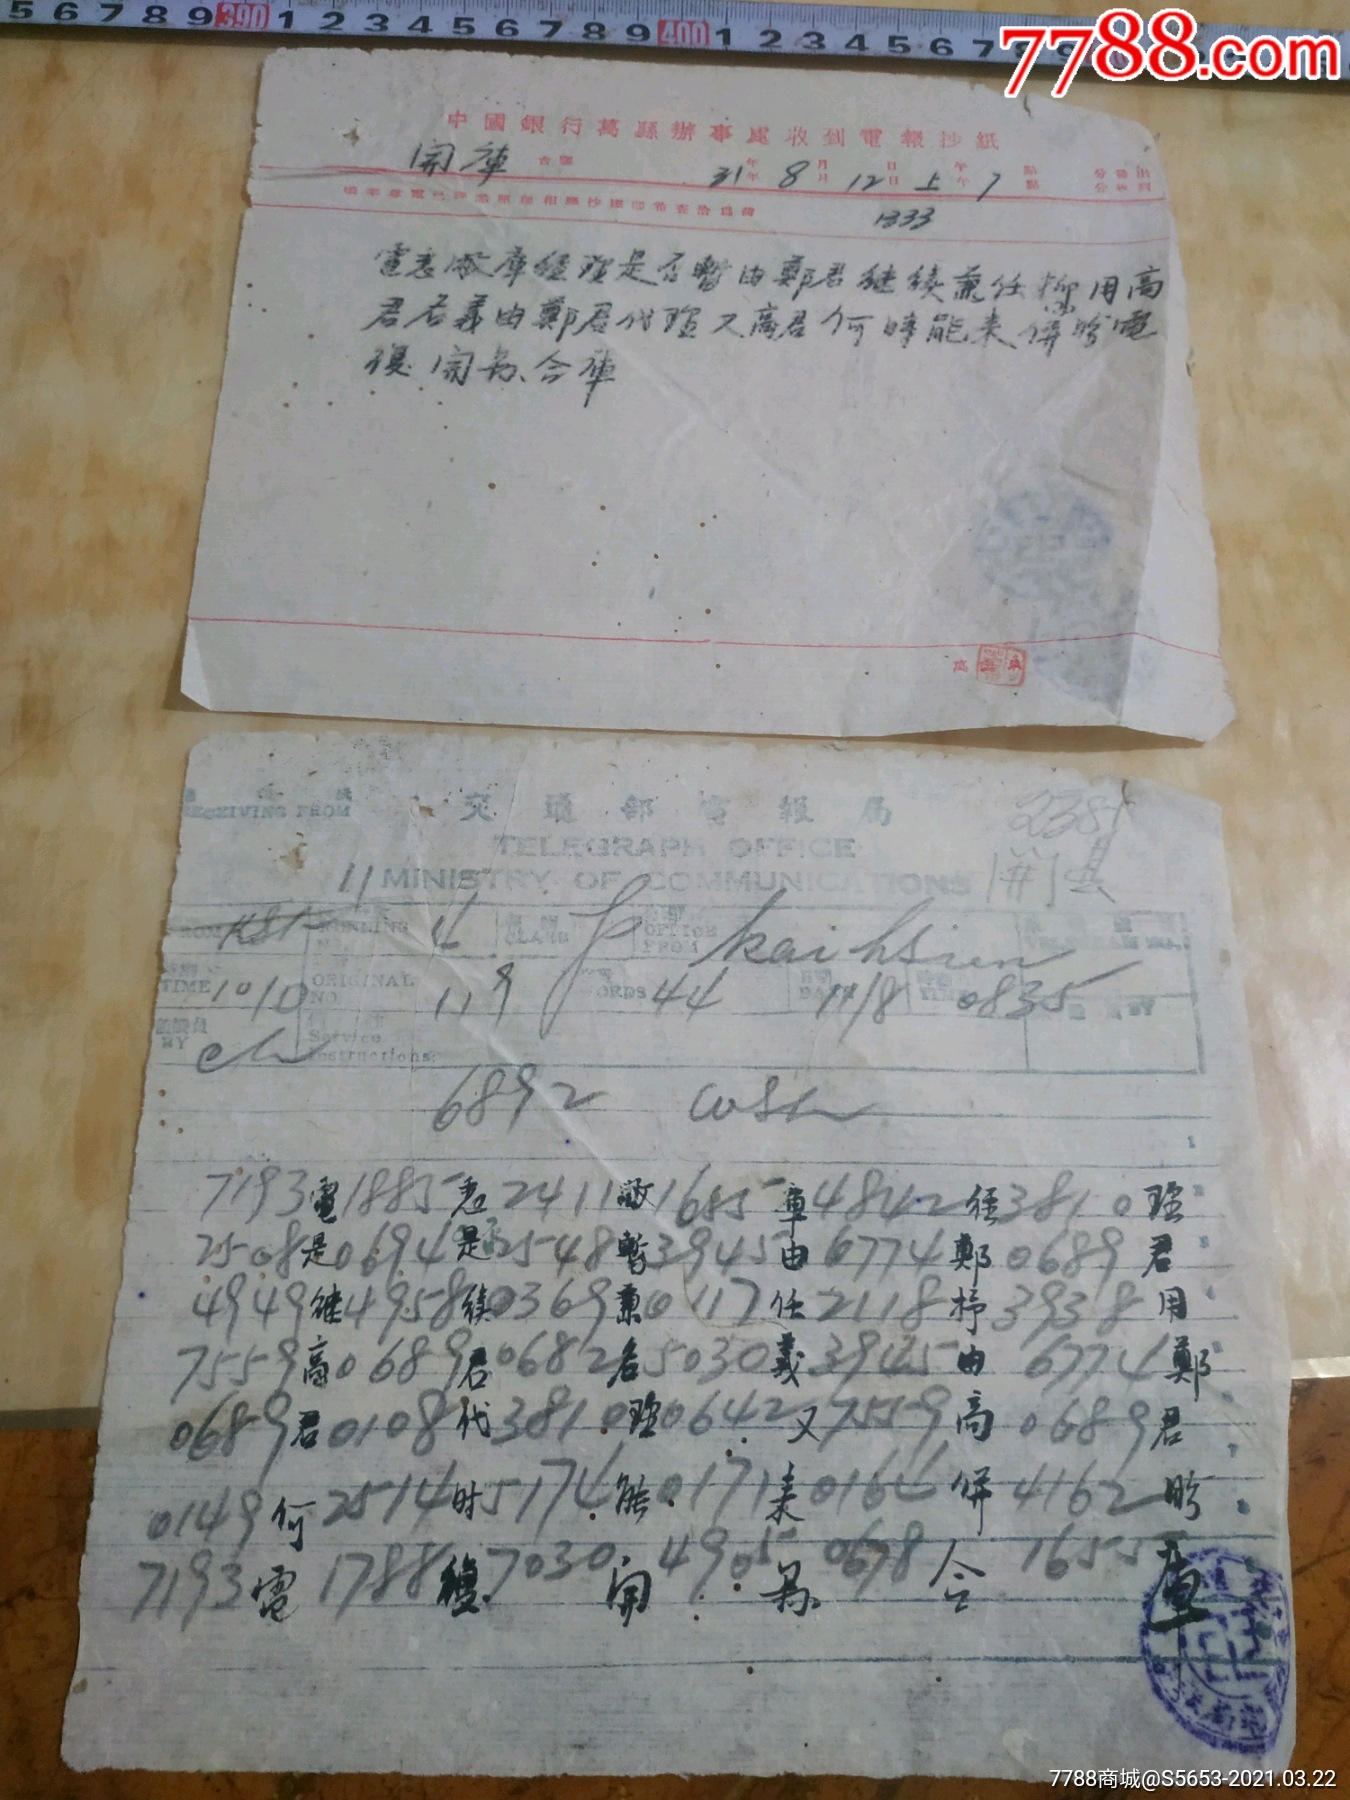 5 6 7 8 9 390 1 2 3 4 5 6 7 8 9 400 1 2 3 4 5 6 7
7788.com
中國銀行萬縣辦事處收到電報抄紙
開庫 31年8月12日上午7點
1333
電悉 庫經理是否暫由鄭君继续兼任抑用高
君名義由鄭君代理又高君何時能来併盼電
復 開 合庫
萬
RECEIVING FROM 交通部電報局 2385
TELEGRAPH OFFICE
MINISTRY OF COMMUNICATIONS 開县
11
CLASS OFFICE FROM Kaihsien
TIME 1010 ORIGINAL NO. 119 WORDS 44 DATE 11/8 TIME 0835
BY Service Instructions:
6892
7193電1885悉2411 1685庫4842經3810理
2508是0694是否2548暫3945由6774鄭0689君
4949继4958续0369兼0117任2118抒3938用
7559高0689君0682名5030義3945由6774鄭
0689君0108代3810理0642又7559高0689君
0149何2514时5174能0171来0164併4162盼
7193電1788復7030開4905 0678合1655庫
7788商城@S5653-2021.03.22